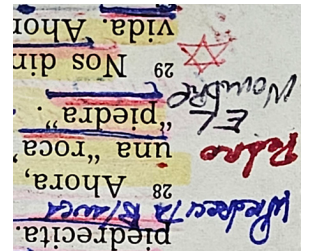 piedrecita.
Piedrecita Blanca
28 Ahora,
una “roca
Pedro
EL
“piedra”.
Nombre
29 Nos din
vida. Ahor